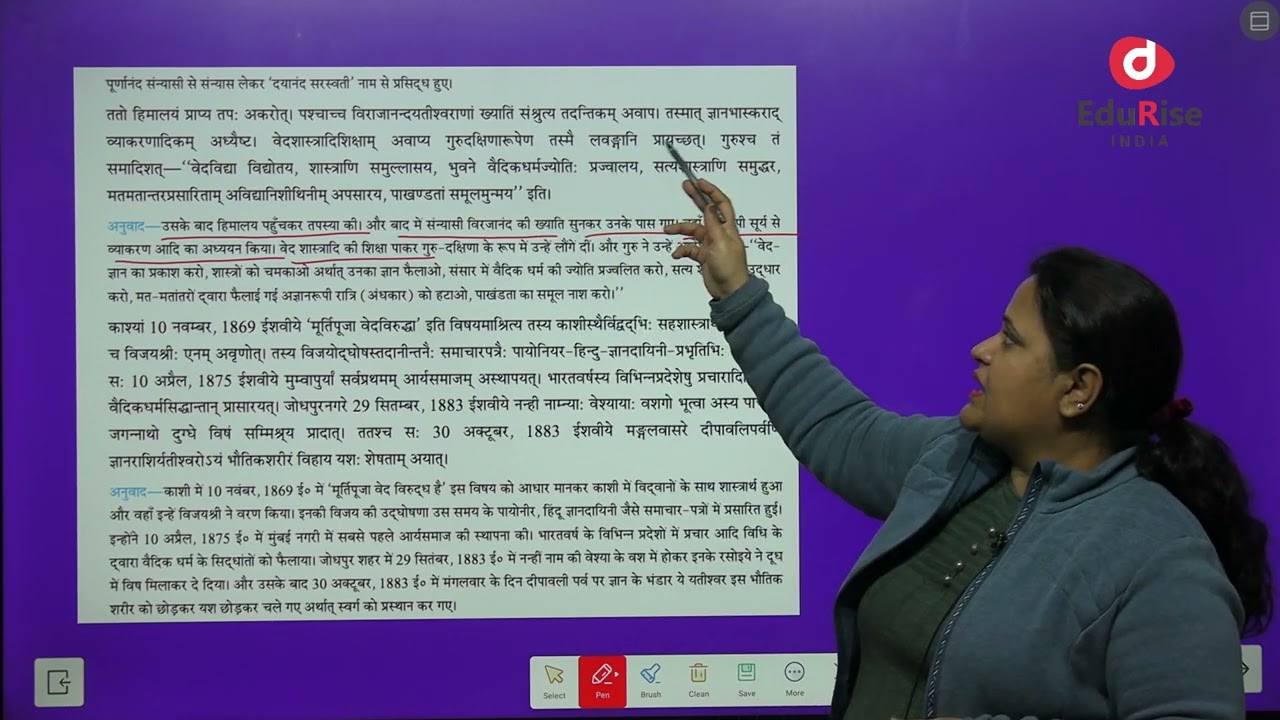 पूर्णानंद संन्यासी से संन्यास लेकर ‘दयानंद सरस्वती’ नाम से प्रसिद्ध हुए।
ततो हिमालयं प्राप्य तप: अकरोत्। पश्चाच्च विराजानन्दयतीश्वराणां ख्यातिं संश्रुत्य तदन्तिकम् अवाप। तस्मात् ज्ञानभास्कराद्
व्याकरणादिकम् अध्यैष्ट। वेदशास्त्रादिशिक्षाम् अवाप्य गुरुदक्षिणारूपेण तस्मै लवङ्गानि प्रायच्छत्। गुरुश्च तं
समादिशत्—“वेदविद्या विद्योतय, शास्त्राणि समुल्लासय, भुवने वैदिकधर्मज्योति: प्रज्वालय, सत्यशास्त्राणि समुद्धर,
मतमतान्तरप्रसारिताम् अविद्यानिशीथिनीम् अपसारय, पाखण्डतां समूलमुन्मय” इति।
अनुवाद—उसके बाद हिमालय पहुँचकर तपस्या की। और बाद में संन्यासी विरजानंद की ख्याति सुनकर उनके पास गए। सूर्य से
व्याकरण आदि का अध्ययन किया। वेद शास्त्रादि की शिक्षा पाकर गुरु-दक्षिणा के रूप में उन्हें लौंगे दीं। और गुरु ने उन्हें “वेद-
ज्ञान का प्रकाश करो, शास्त्रों को चमकाओ अर्थात् उनका ज्ञान फैलाओ, संसार में वैदिक धर्म की ज्योति प्रज्वलित करो, सत्य उद्धार
करो, मत-मतांतरों द्वारा फैलाई गई अज्ञानरूपी रात्रि (अंधकार) को हटाओ, पाखंडता का समूल नाश करो।”
काश्यां 10 नवम्बर, 1869 ईशवीये ‘मूर्तिपूजा वेदविरुद्धा’ इति विषयमाश्रित्य तस्य काशीस्थैर्विद्वद्भि:
च विजयश्री: एनम् अवृणोत्। तस्य विजयोद्घोषस्तदानीन्तनै: समाचारपत्रै: पायोनियर-हिन्दु-ज्ञानदायिनी-प्रभृतिभि:
स: 10 अप्रैल, 1875 ईशवीये मुम्वापुर्यां सर्वप्रथमम् आर्यसमाजम् अस्थापयत्। भारतवर्षस्य विभिन्नप्रदेशेषु
वैदिकधर्मसिद्धान्तान् प्रासारयत्। जोधपुरनगरे 29 सितम्बर, 1883 ईशवीये नन्ही नाम्न्या: वेश्याया: वशगो भूत्वा अस्य
जगन्नाथो दुग्धे विषं सम्मिश्र्य प्रादात्। ततश्च स: 30 अक्टूबर, 1883 ईशवीये मङ्गलवासरे
ज्ञानराशिर्यतीश्वरोऽयं भौतिकशरीरं विहाय यश: शेषताम् अयात्।
अनुवाद—काशी में 10 नवंबर, 1869 ई० में ‘मूर्तिपूजा वेद विरुद्ध है’ इस विषय को आधार मानकर काशी में विद्वानों के साथ शास्त्रार्थ हुआ
और वहाँ इन्हें विजयश्री ने वरण किया। इनकी विजय की उद्घोषणा उस समय के पायोनीर, हिंदू ज्ञानदायिनी जैसे समाचार-पत्रों में प्रसारित हुई।
इन्होंने 10 अप्रैल, 1875 ई० में मुंबई नगरी में सबसे पहले आर्यसमाज की स्थापना की। भारतवर्ष के विभिन्न प्रदेशों में प्रचार आदि विधि के
द्वारा वैदिक धर्म के सिद्धांतों को फैलाया। जोधपुर शहर में 29 सितंबर, 1883 ई० में नन्हीं नाम की वेश्या के वश में होकर इनके रसोइये ने दूध
में विष मिलाकर दे दिया। और उसके बाद 30 अक्टूबर, 1883 ई० में मंगलवार के दिन दीपावली पर्व पर ज्ञान के भंडार ये यतीश्वर इस भौतिक
शरीर को छोड़कर यश छोड़कर चले गए अर्थात् स्वर्ग को प्रस्थान कर गए।
EduRise
INDIA
Select Pen Brush Clean Save More